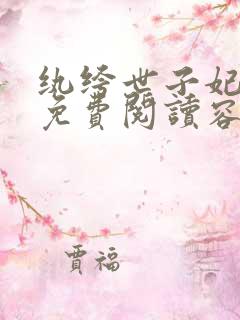 纨绔世子妃
免費閱讀容
賈福